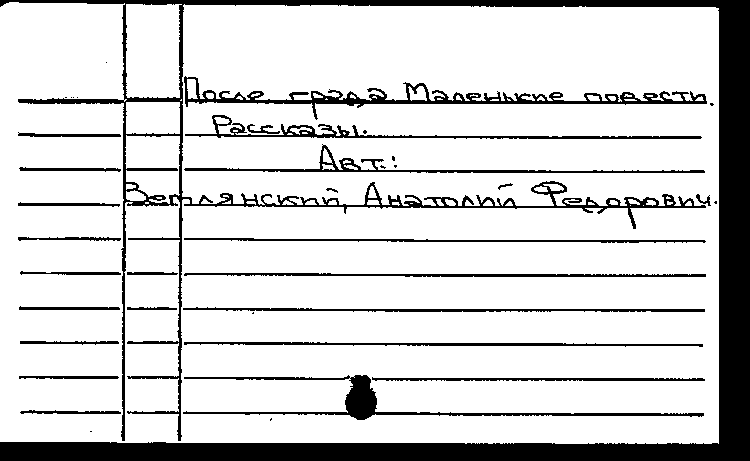 После града Маленькие повести.
Рассказы.
Авт.:
Землянский, Анатолий Федорович.